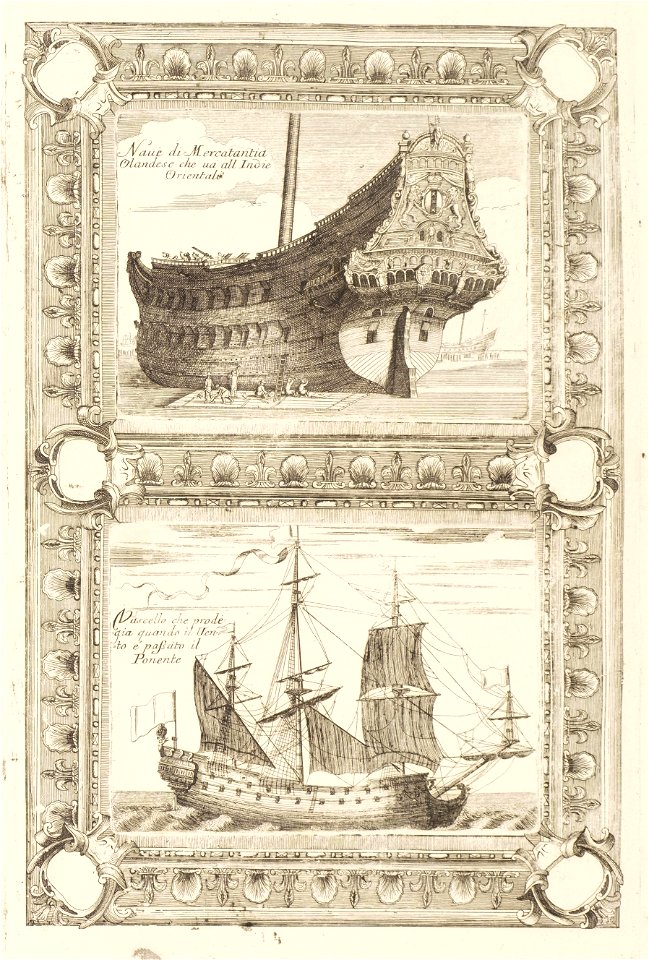 Naue di Mercatantia
Olandese che ua all Indie
Orientale
Vascello che prode
gia quando il Uen-
to e paſsato il
Ponente